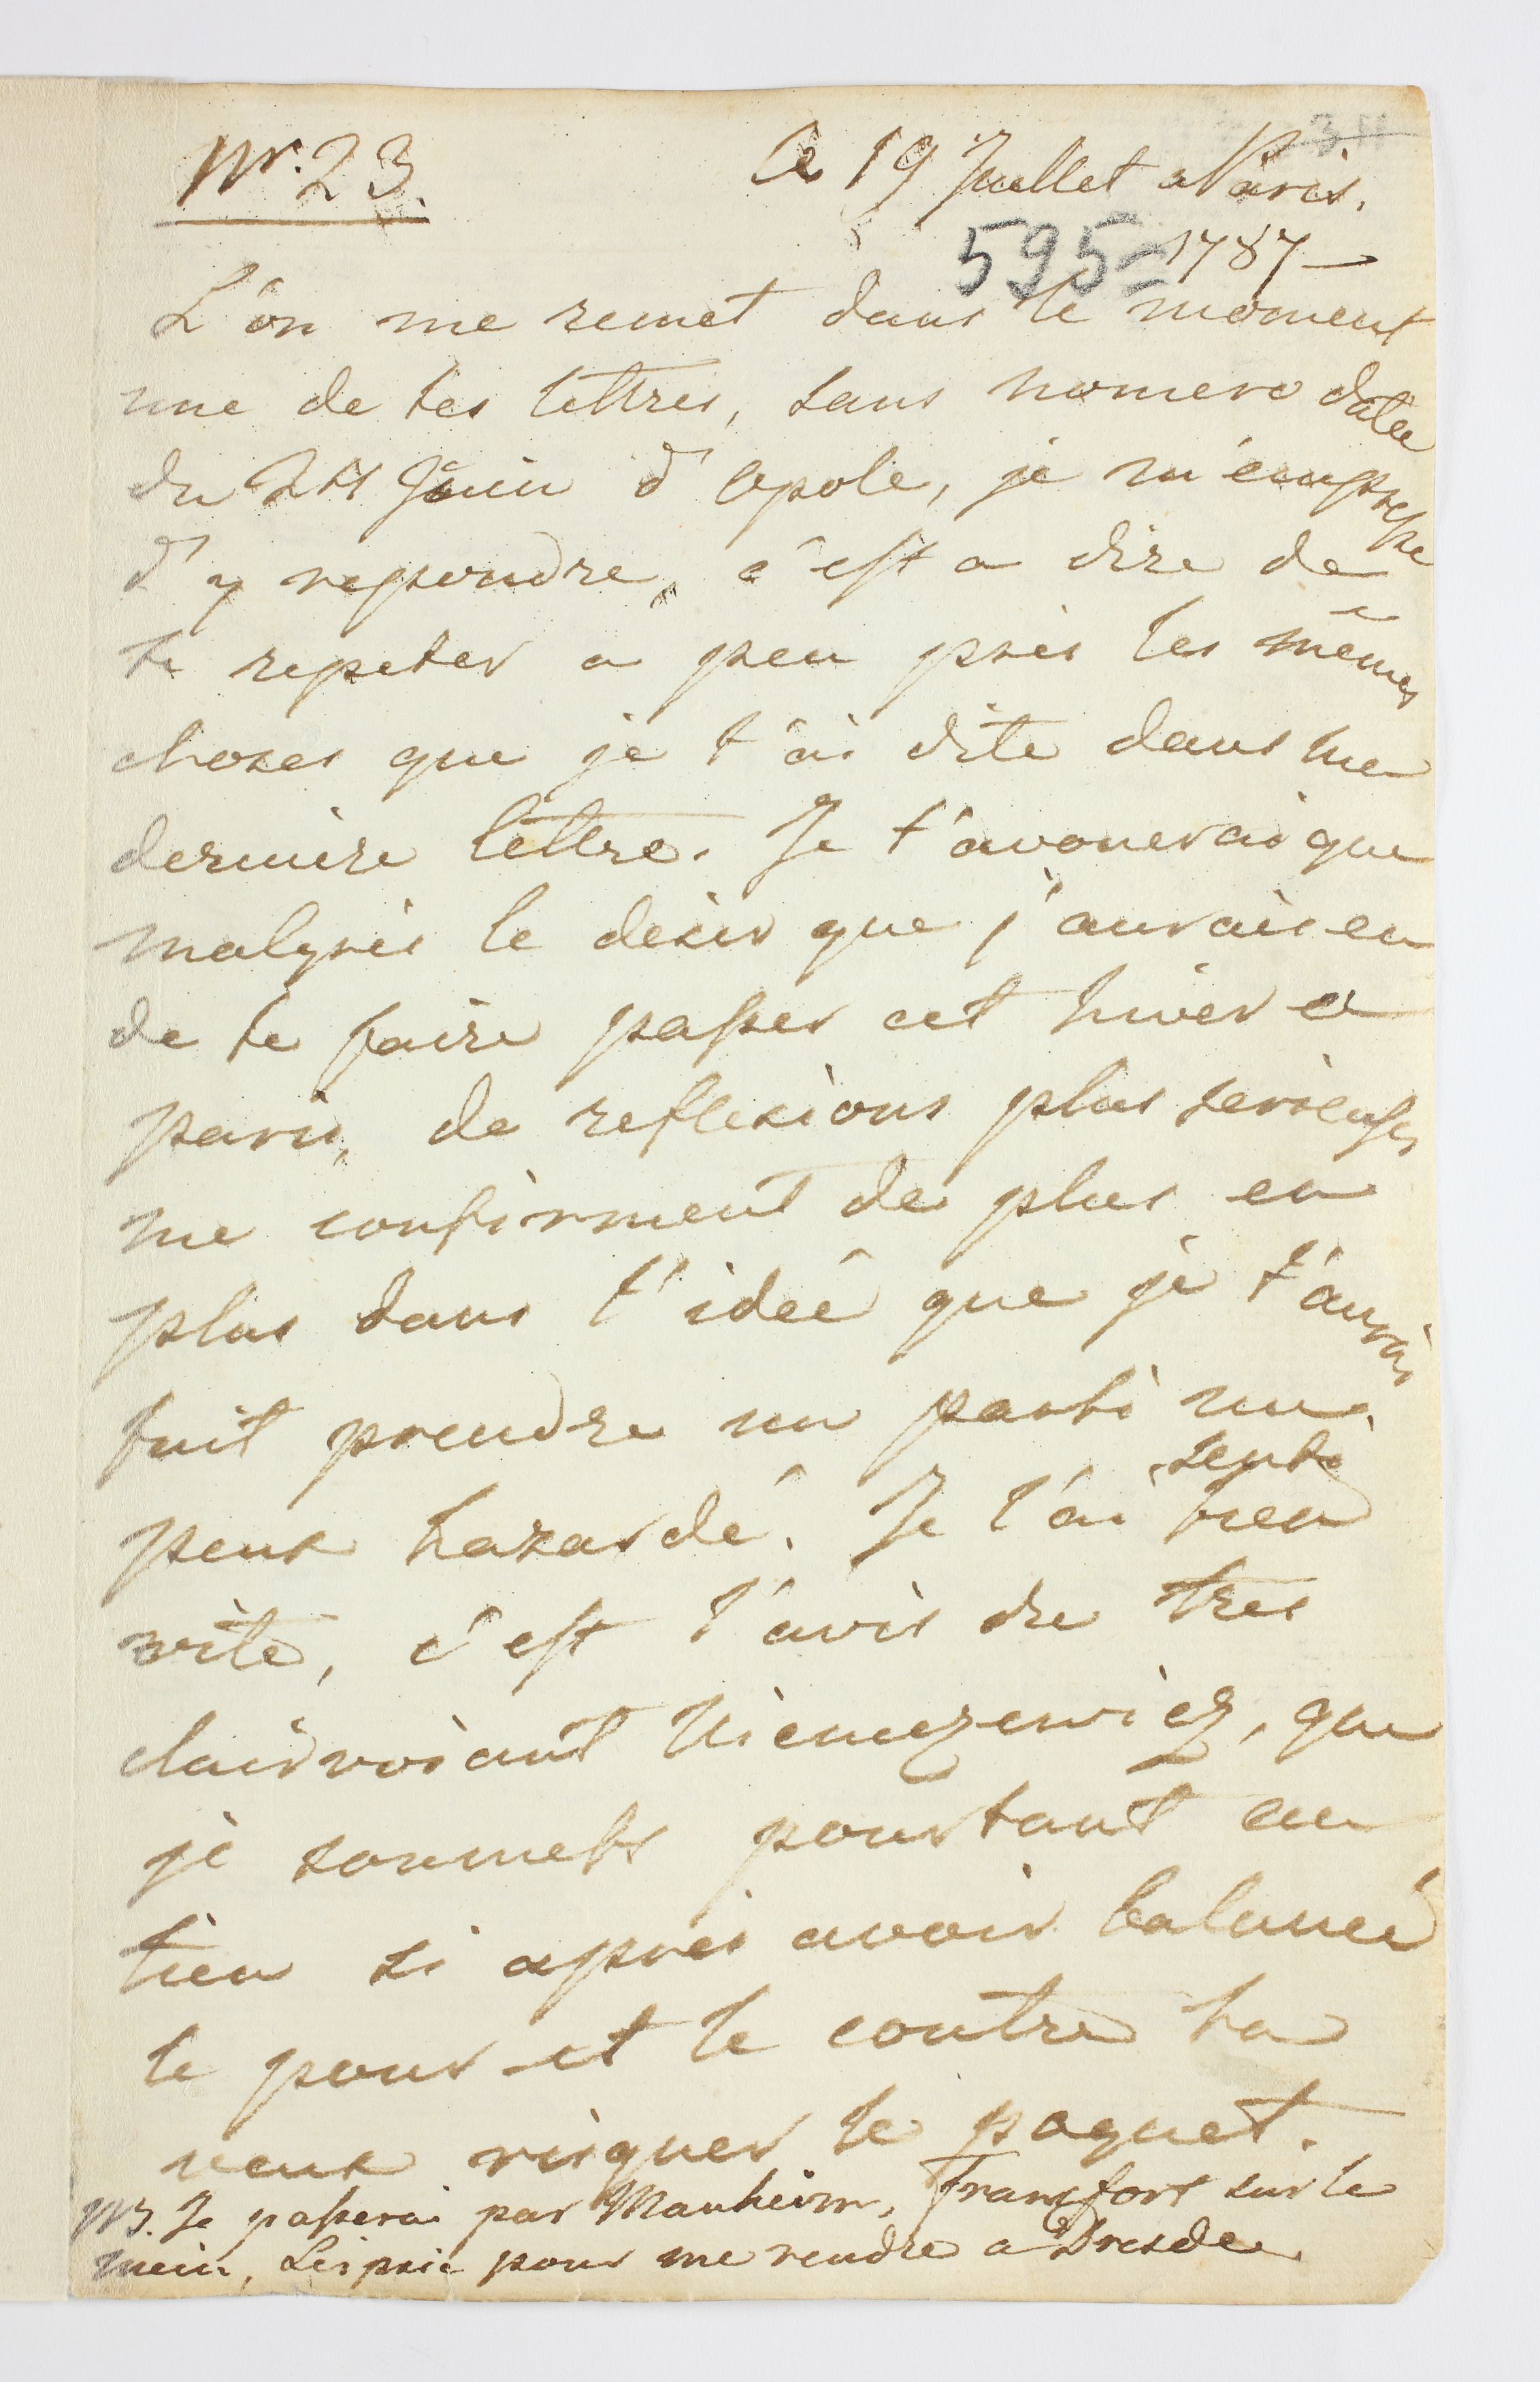 Nr. 23.
le 19 Juillet a Paris.
311
595 = 1787 —
L'on me remet dans le moment
une de tes lettres, sans nomero datée
du 24 Juin d'Opole, je m'empresse
d'y repondre, c'est a dire de
te repeter a peu près les mêmes
choses que je t'ai dite dans ma
derniere lettre. Je t'avouerai que
malgrés le desir que j'aurais eu
de te faire passer cet hiver a
paris, de reflexions plus serieuses
me confirment de plus en
plus dans l'ideé que je t'aurais
fait prendre un parti un
peux hazardé. Je l'ai senti bien
vite, c'est l'avis du tres
clairvoiant Niemczewicz, que
je soumets pourtant au
tien si après avoir balancé
le pour et le contre tu
veux risquer le paquet.
NB. Je passerai par Manheim, Francfort sur le
mein, Leipsic pour me rendre a Dresde.